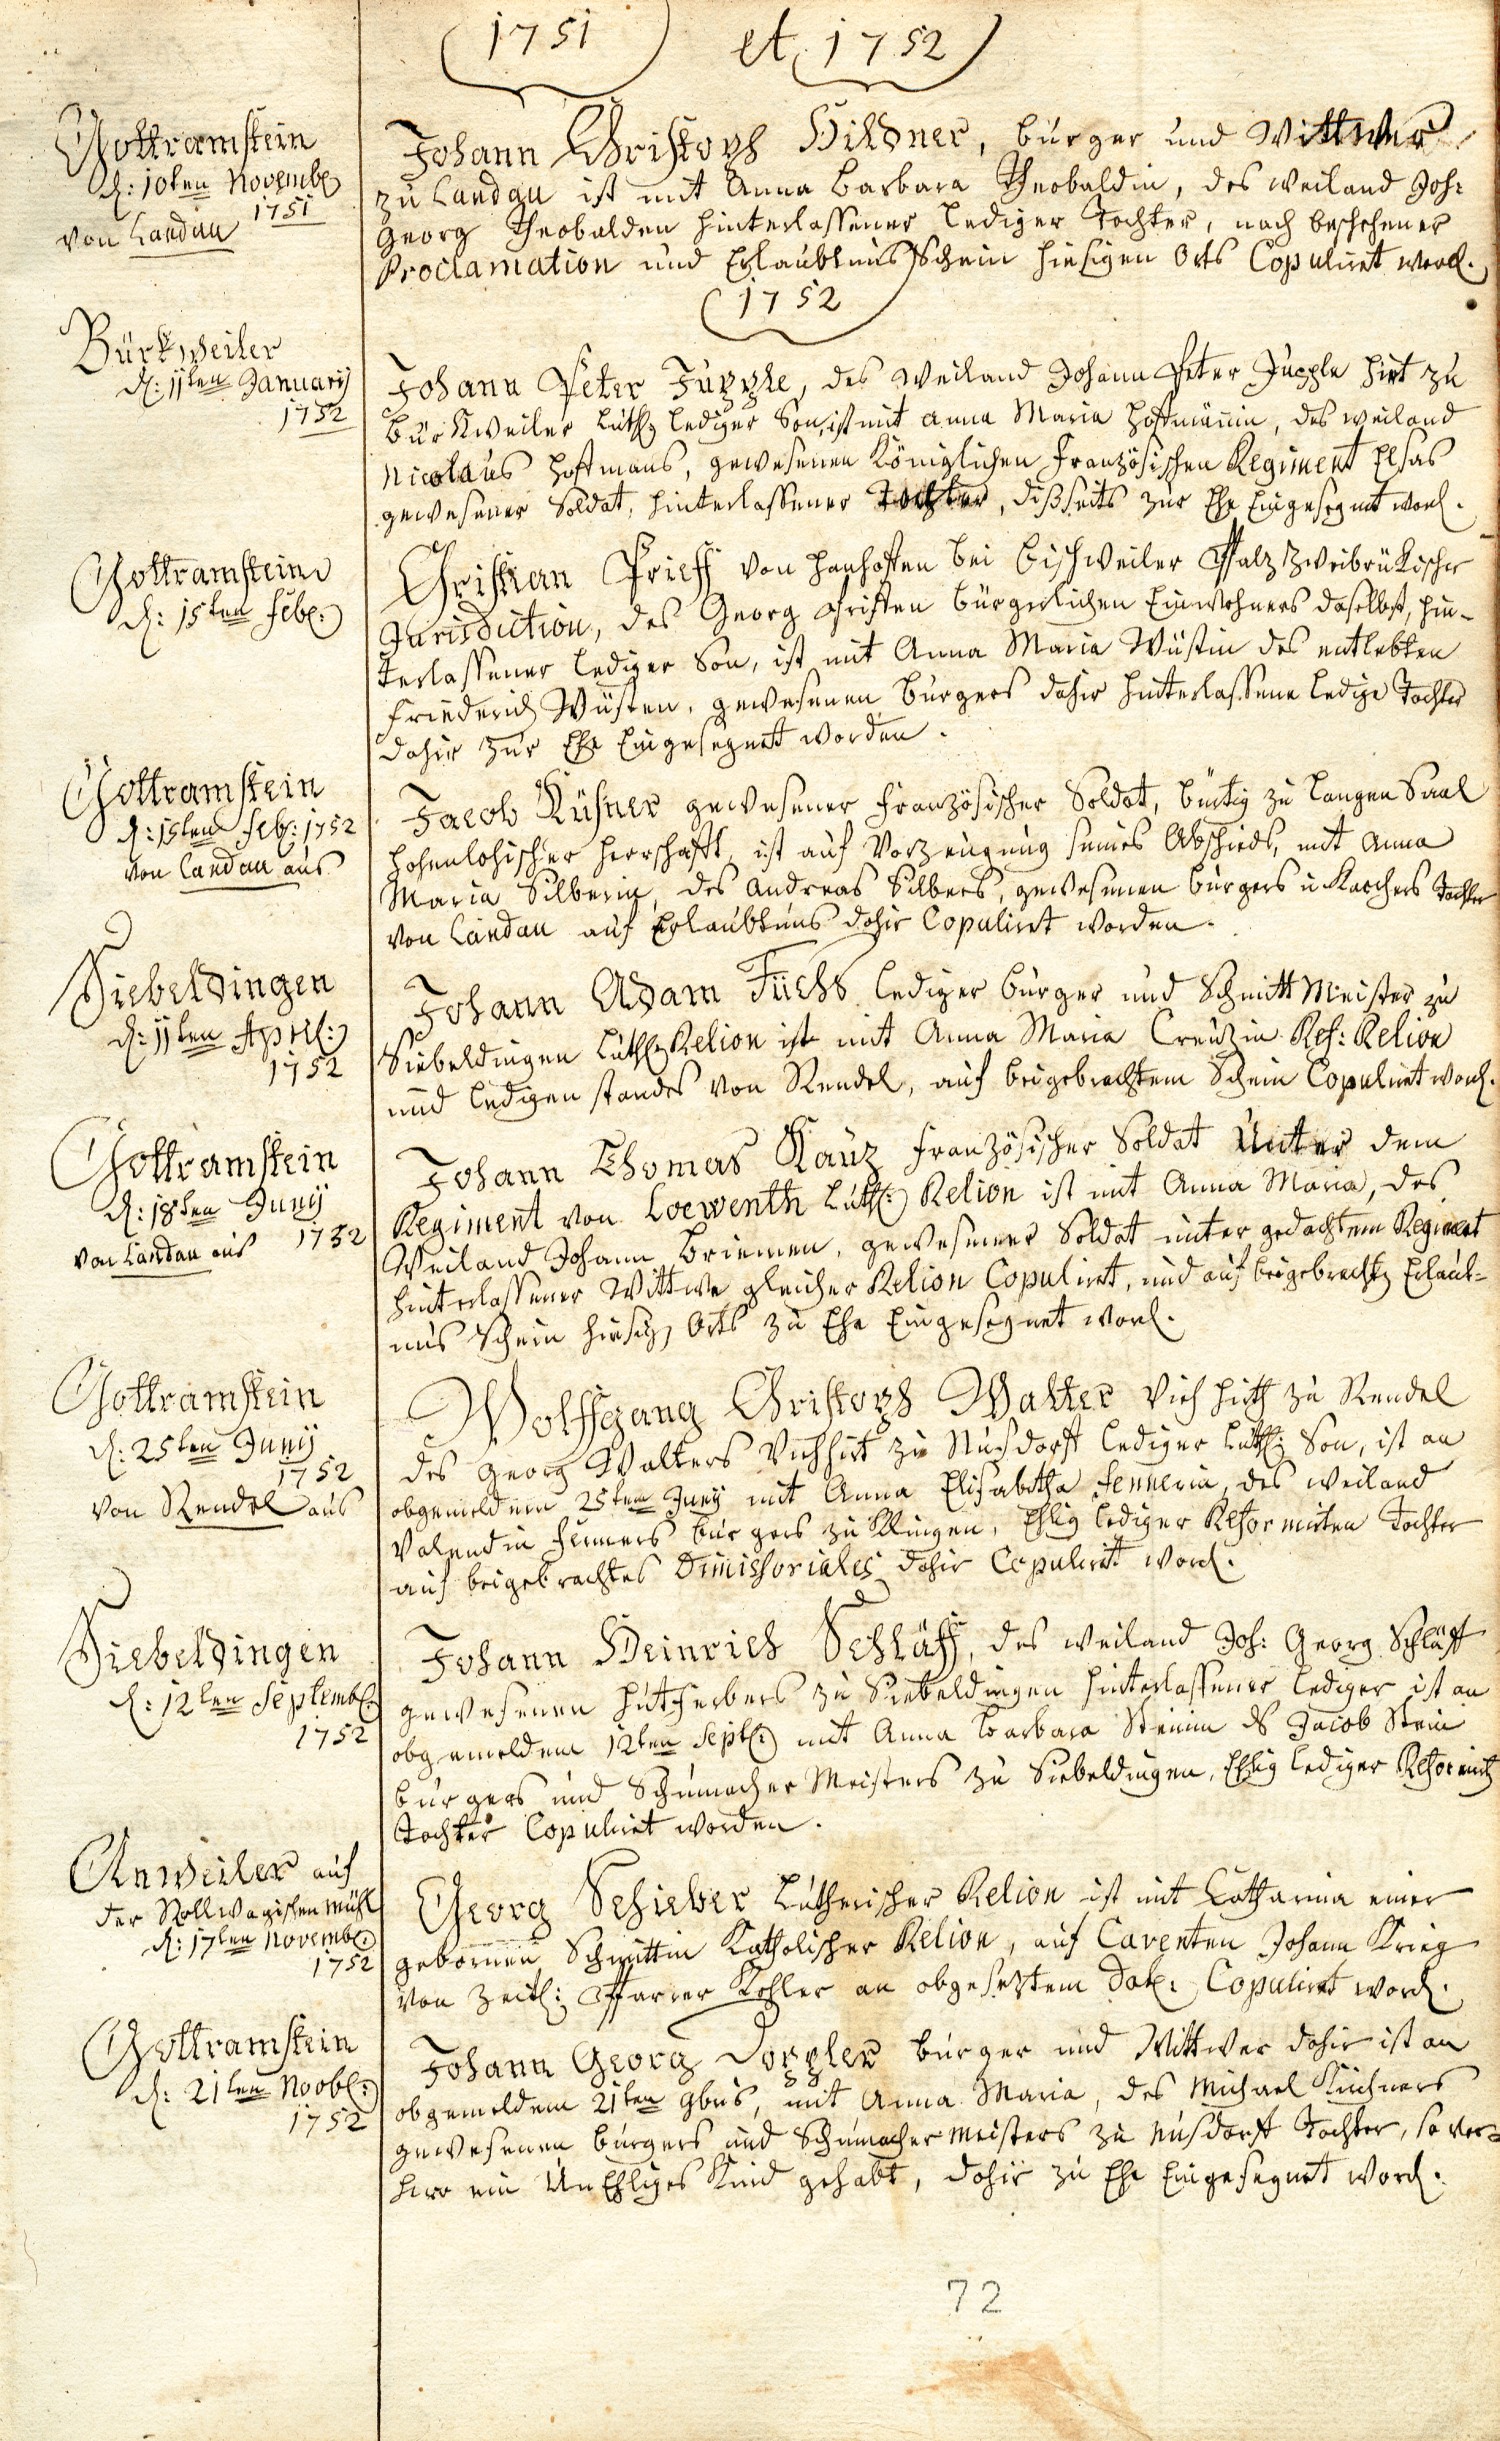 1751 et 1752
Gottramstein
d: 10ten Novembr
1751
von Landau
Johann Christoph Hildner, burger und Wittwer
zu Landau ist mit Anna Barbara Theobaldin, des weiland Joh:
Georg Theobalden hinterlassener lediger Tochter, nach beschehener
Proclamation und Erlaubtnus Schein hiesigen Orts Copuliret word.
1752
Bürkweiler
d: 11ten Januarij
1752
Johann Peter Jupple, des weiland Johann Peter Jupple Hirt zu
Bürkweiler Luth. lediger Son, ist mit Anna Maria Hoffmännin, des weiland
Nicolaus Hoffmans, gewesenen Königlichen Französischen Regiment Elsas
gewesener Soldat, hinterlassener Tochter, dißseits zur Ehe Eingesegnet word.
Gottramstein
d: 15ten Febr:
Christian Frieß von Hanhoffen bei Bischweiler Pfalz Zweibrükischer
Jurisdiction, des Georg Friesen bürgerlichen Einwohners daselbst, hin-
terlassener lediger Son, ist mit Anna Maria Wüstin des entlebten
Friederich Wüsten, gewesenen burgers dahir hinterlassene ledige Tochter
dahir zur Ehe Eingesegnet worden.
Gottramstein
d: 15ten Feb: 1752
von Landau aus
Jacob Küsner gewesener Französischer Soldat, bürtig zu Langen Saal
Hohenlohischer Herrschafft, ist auf Vorzeigung seines Abschieds, mit Anna
Maria Silberin, des Andreas Silbers, gewesenen burgers u Karchers Tochter
von Landau auf Erlaubtnus dahir Copuliret worden.
Siebeldingen
d: 11ten April:
1752
Johann Adam Fuchs lediger burger und Schmitt Meister zu
Siebeldingen Luth. Relion ist mit Anna Maria Creutzin Ref: Relion
und ledigen standes von Rendel, auf beigebrachtem Schein Copuliret word.
Gottramstein
d: 18ten Junij
1752
von Landau aus
Johann Thomas Kauz Französischer Soldat Unter dem
Regiment von Loewenth Luth: Relion ist mit Anna Maria, des
Weiland Johann Briemen, gewesener Soldat unter gedachtem Regiment
hinterlassener Wittwe gleicher Relion Copuliret, und auf beigebracht Erlaub-
nus Schein hiesig Orts zu Ehe Eingesegnet word.
Gottramstein
d: 25ten Junij
1752
von Rendel aus
Wolffgang Christoph Walter Vich hirth zu Rendel
des Georg Walters Vichhirt zu Nusdorff lediger Luth: Son, ist an
obgemeldem 25ten Junij mit Anna Elisabetha Fenneria, des weiland
Valendin Fenners burgers zu Klingen, Ehlig lediger Reformirten Tochter
auf beigebrachtes Dimissoriales dahir Copuliret word.
Siebeldingen
d: 12ten Septembr:
1752
Johann Heinrich Schläff, des weiland Joh: Georg Schläff
gewesenen hutferbers zu Siebeldingen hinterlassener lediger ist an
obgemeldem 12ten Sept: mit Anna Barbara Steinin des Jacob Stein
burgers und Schumacher Meisters zu Siebeldingen, Ehlig lediger Reformirt
Tochter Copuliret worden.
Anweiler auf
der Rollwagischen Mühl
d: 17ten Novembr:
1752
Georg Schieber Lutherischer Relion ist mit Catharina einer
gebornen Schmittin Katholischer Relion, auf Caventen Johann Krieg
von Zeitl: Pfarrer Kohler an obgeseztem Dat: Copuliret word.
Gottramstein
d: 21ten Novbr:
1752
Johann Georg Doppler burger und Wittwer dahir ist an
obgemeldem 21ten 9bris, mit Anna Maria, des Michael Kirchners
gewesenen burgers und Schumacher Meisters zu Nusdorff Tochter, so vor-
hero ein Un Ehliges Kind gehabt, dahir zu Ehe Eingesegnet word.
72